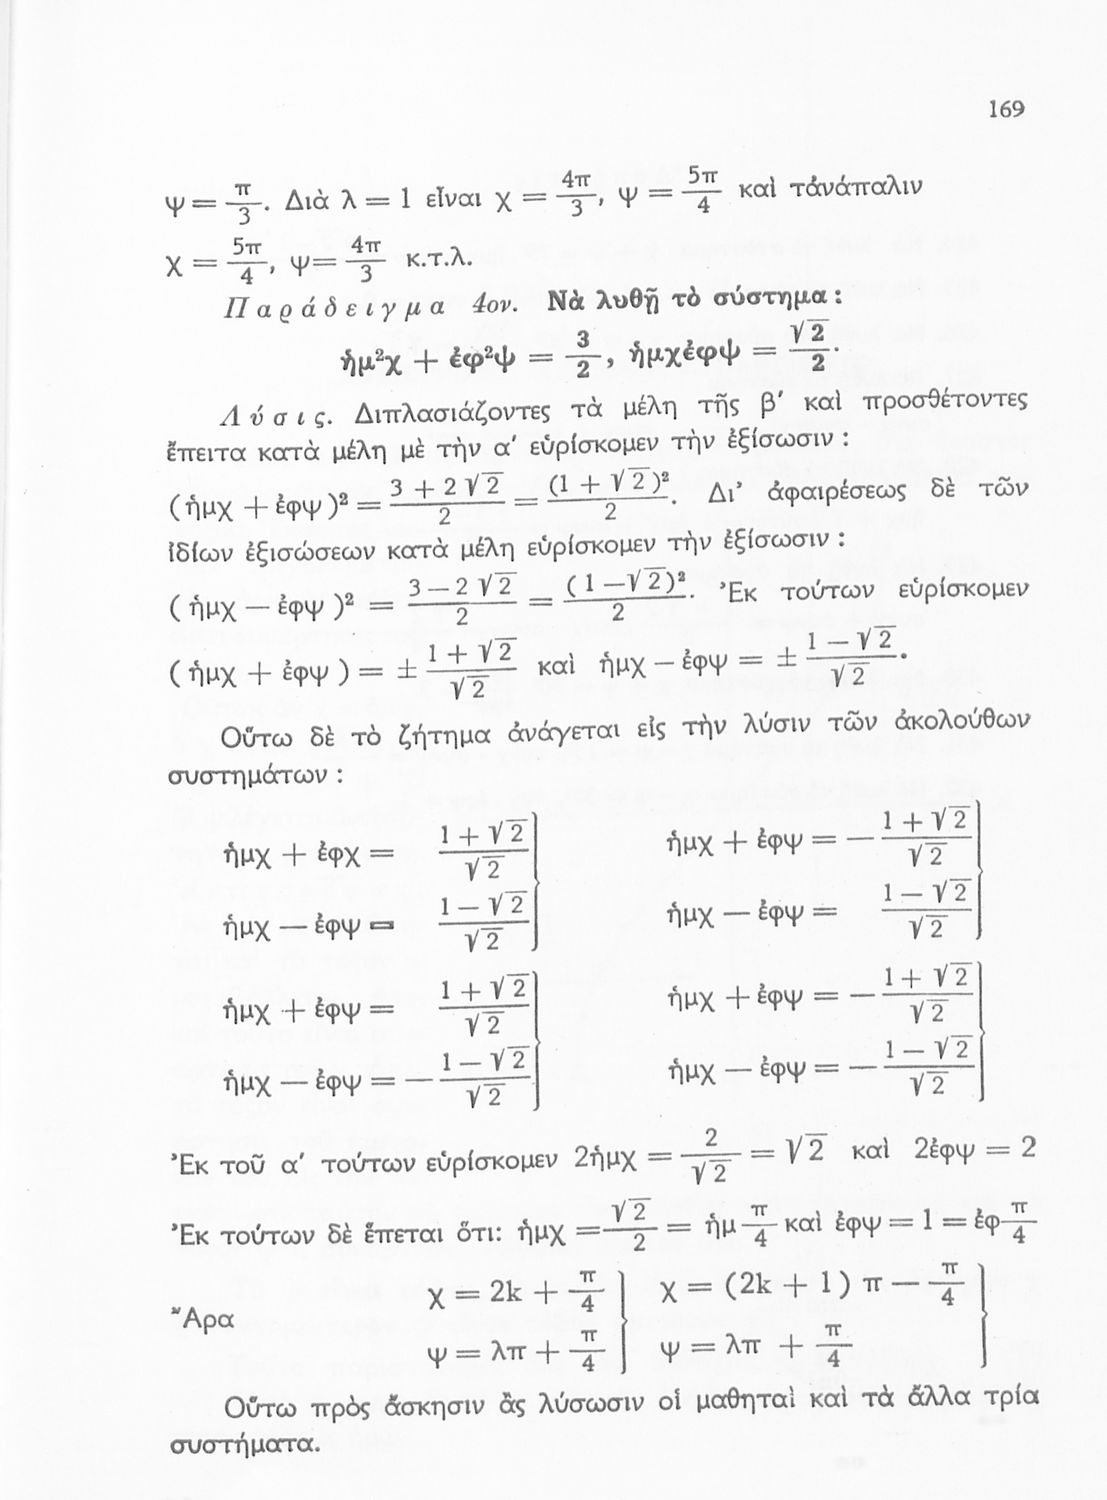 169
ψ = π/3. Διὰ λ = 1 εἶναι χ = 4π/3, ψ = 5π/4 καὶ τἀνάπαλιν
χ = 5π/4, ψ = 4π/3 κ.τ.λ.
Παράδειγμα 4ον. Νὰ λυθῇ τὸ σύστημα:
ἡμ²χ + ἐφ²ψ = 3/2, ἡμχἐφψ = √2/2.
Λύσις. Διπλασιάζοντες τὰ μέλη τῆς β′ καὶ προσθέτοντες
ἔπειτα κατὰ μέλη μὲ τὴν α′ εὑρίσκομεν τὴν ἐξίσωσιν:
(ἡμχ + ἐφψ)² = (3 + 2√2)/2 = (1 + √2)²/2. Δι’ ἀφαιρέσεως δὲ τῶν
ἰδίων ἐξισώσεων κατὰ μέλη εὑρίσκομεν τὴν ἐξίσωσιν:
(ἡμχ — ἐφψ)² = (3 — 2√2)/2 = (1 —√2)²/2. Ἐκ τούτων εὑρίσκομεν
(ἡμχ + ἐφψ) = ± (1 + √2)/√2 καὶ ἡμχ — ἐφψ = ± (1 — √2)/√2.
Οὕτω δὲ τὸ ζήτημα ἀνάγεται εἰς τὴν λύσιν τῶν ἀκολούθων
συστημάτων:
ἡμχ + ἐφχ = (1 + √2)/√2 } ἡμχ + ἐφψ = — (1 + √2)/√2 }
ἡμχ — ἐφψ = (1 — √2)/√2 } ἡμχ — ἐφψ = (1 — √2)/√2 }
ἡμχ + ἐφψ = (1 + √2)/√2 } ἡμχ + ἐφψ = — (1 + √2)/√2 }
ἡμχ — ἐφψ = — (1 — √2)/√2 } ἡμχ — ἐφψ = — (1 — √2)/√2 }
Ἐκ τοῦ α′ τούτων εὑρίσκομεν 2ἡμχ = 2/√2 = √2 καὶ 2ἐφψ = 2
Ἐκ τούτων δὲ ἕπεται ὅτι: ἡμχ = √2/2 = ἡμ π/4 καὶ ἐφψ = 1 = ἐφ π/4
Ἄρα χ = 2k + π/4 } χ = (2k + 1) π — π/4 }
ψ = λπ + π/4 } ψ = λπ + π/4 }
Οὕτω πρὸς ἄσκησιν ἂς λύσωσιν οἱ μαθηταὶ καὶ τὰ ἄλλα τρία
συστήματα.